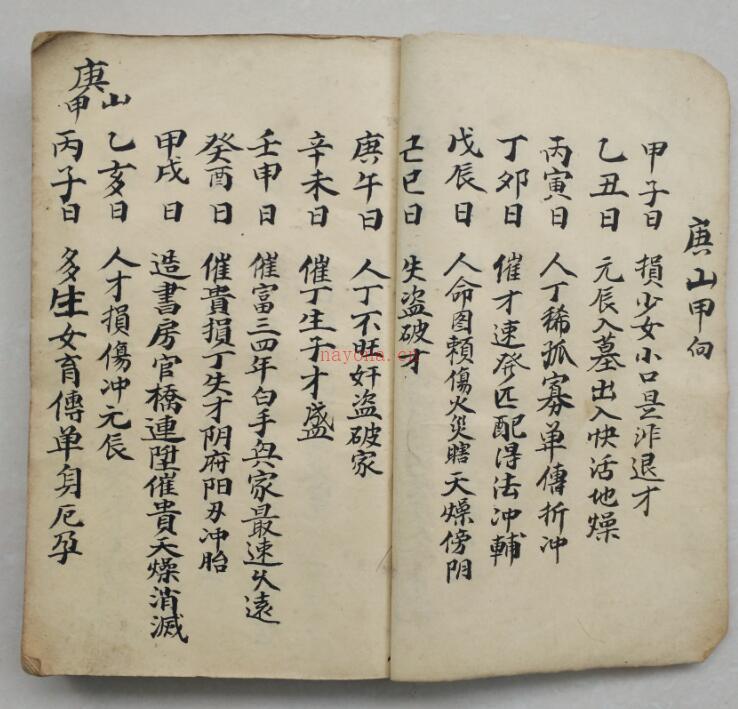 庚山甲向
甲子日 損少女小口是非退才
乙丑日 元辰入墓出入快活地燥
丙寅日 人丁稀孤寡单傳折冲
丁卯日 催才速発匹配得法冲輔
戊辰日 人命图賴傷火災瞎天燥傍阴
己巳日 失盗破才
庚午日 人丁不旺奸盗破家
辛未日 催丁生子才盛
壬申日 催富三四年白手兴家最速久遠
癸酉日 催貴損丁失才阴府阳刃冲胎
甲戌日 造書房官橋連陞催貴天燥消滅
乙亥日 人才損傷冲元辰
丙子日 多生女育傳单身厄孕
庚山
甲
nayona.cn